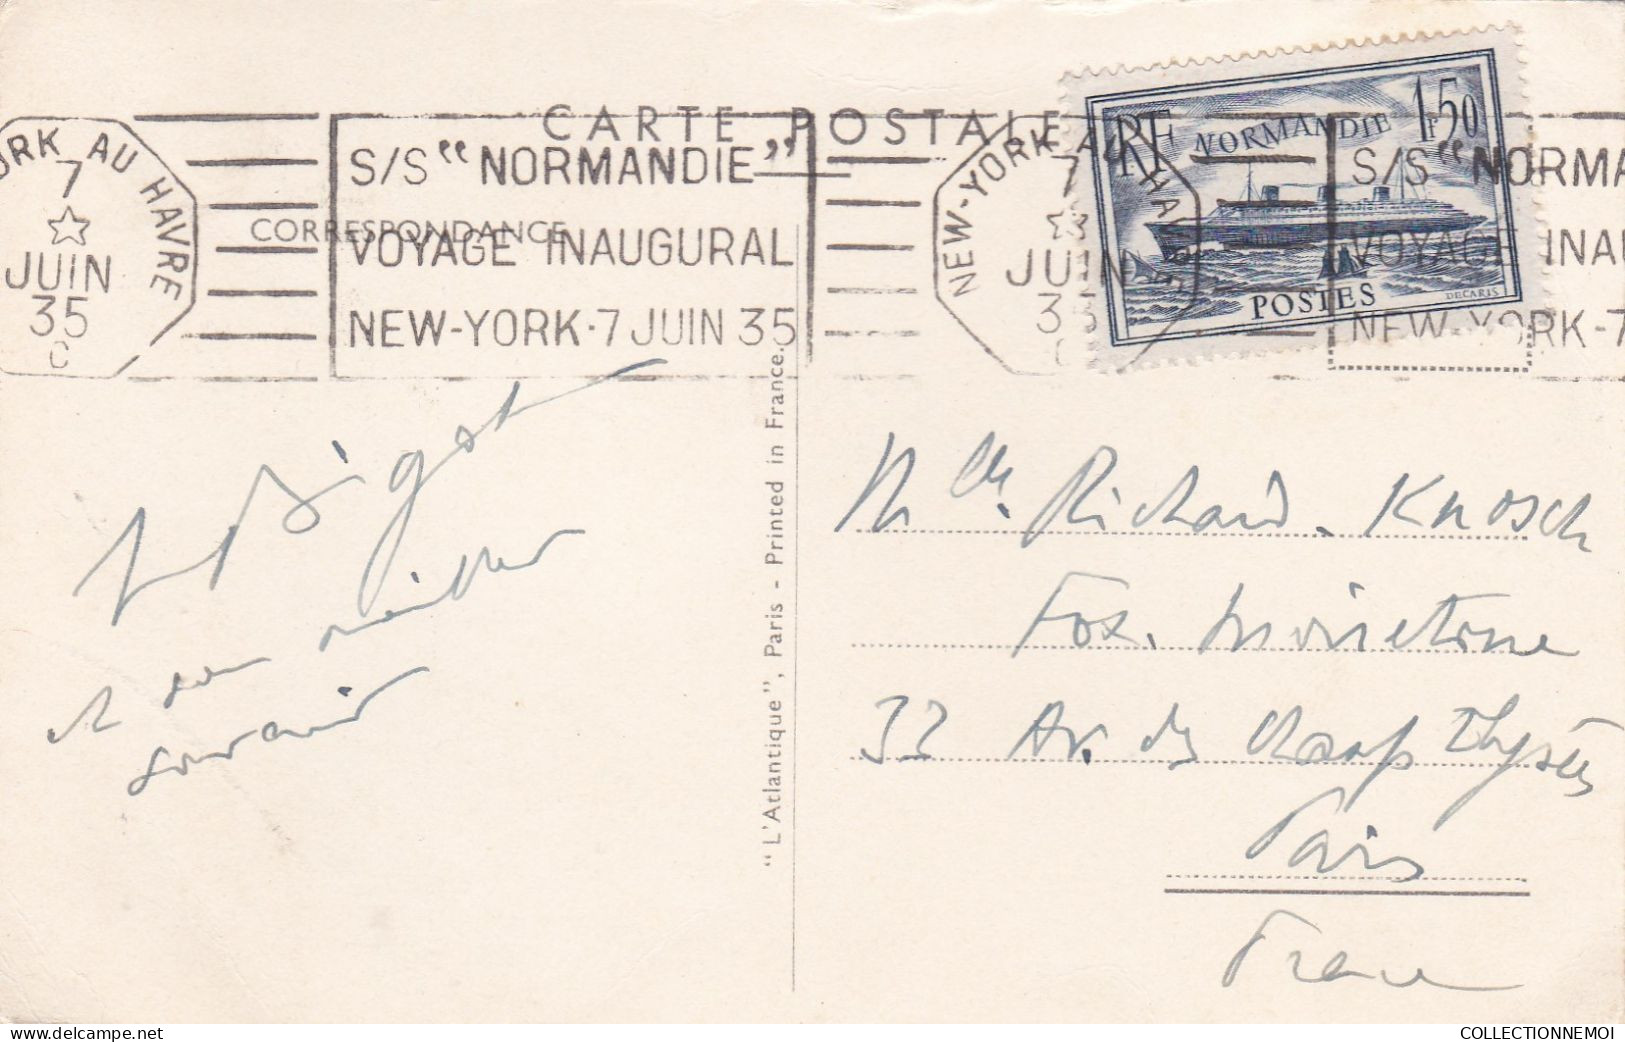 CARTE POSTALE
NEW-YORK AU HAVRE
7
JUIN
35
S/S "NORMANDIE"
VOYAGE INAUGURAL
NEW-YORK·7 JUIN 35
NEW-YORK AU HAVRE
7
JUIN
35
S/S "NORMA
VOYAGE INAU
NEW-YORK-7
RF NORMANDIE 1F50
POSTES
DECARIS
CORRESPONDANCE
Bigot
et son meilleur
souvenir
"L'Atlantique", Paris - Printed in France.
Richard. Knosch
Fox. Movietone
33 Av. des Champs Elysées
Paris
France
COLLECTIONNEMOI